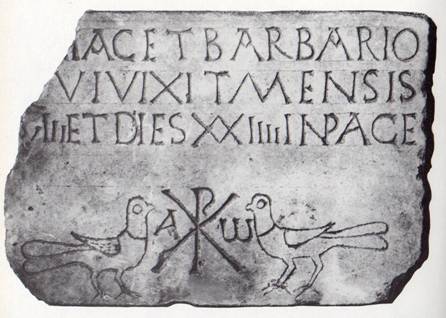 IACET BARBARIO
VI VIXIT MENSIS
IIII ET DIES XXIIII IN PACE
A ☧ ω